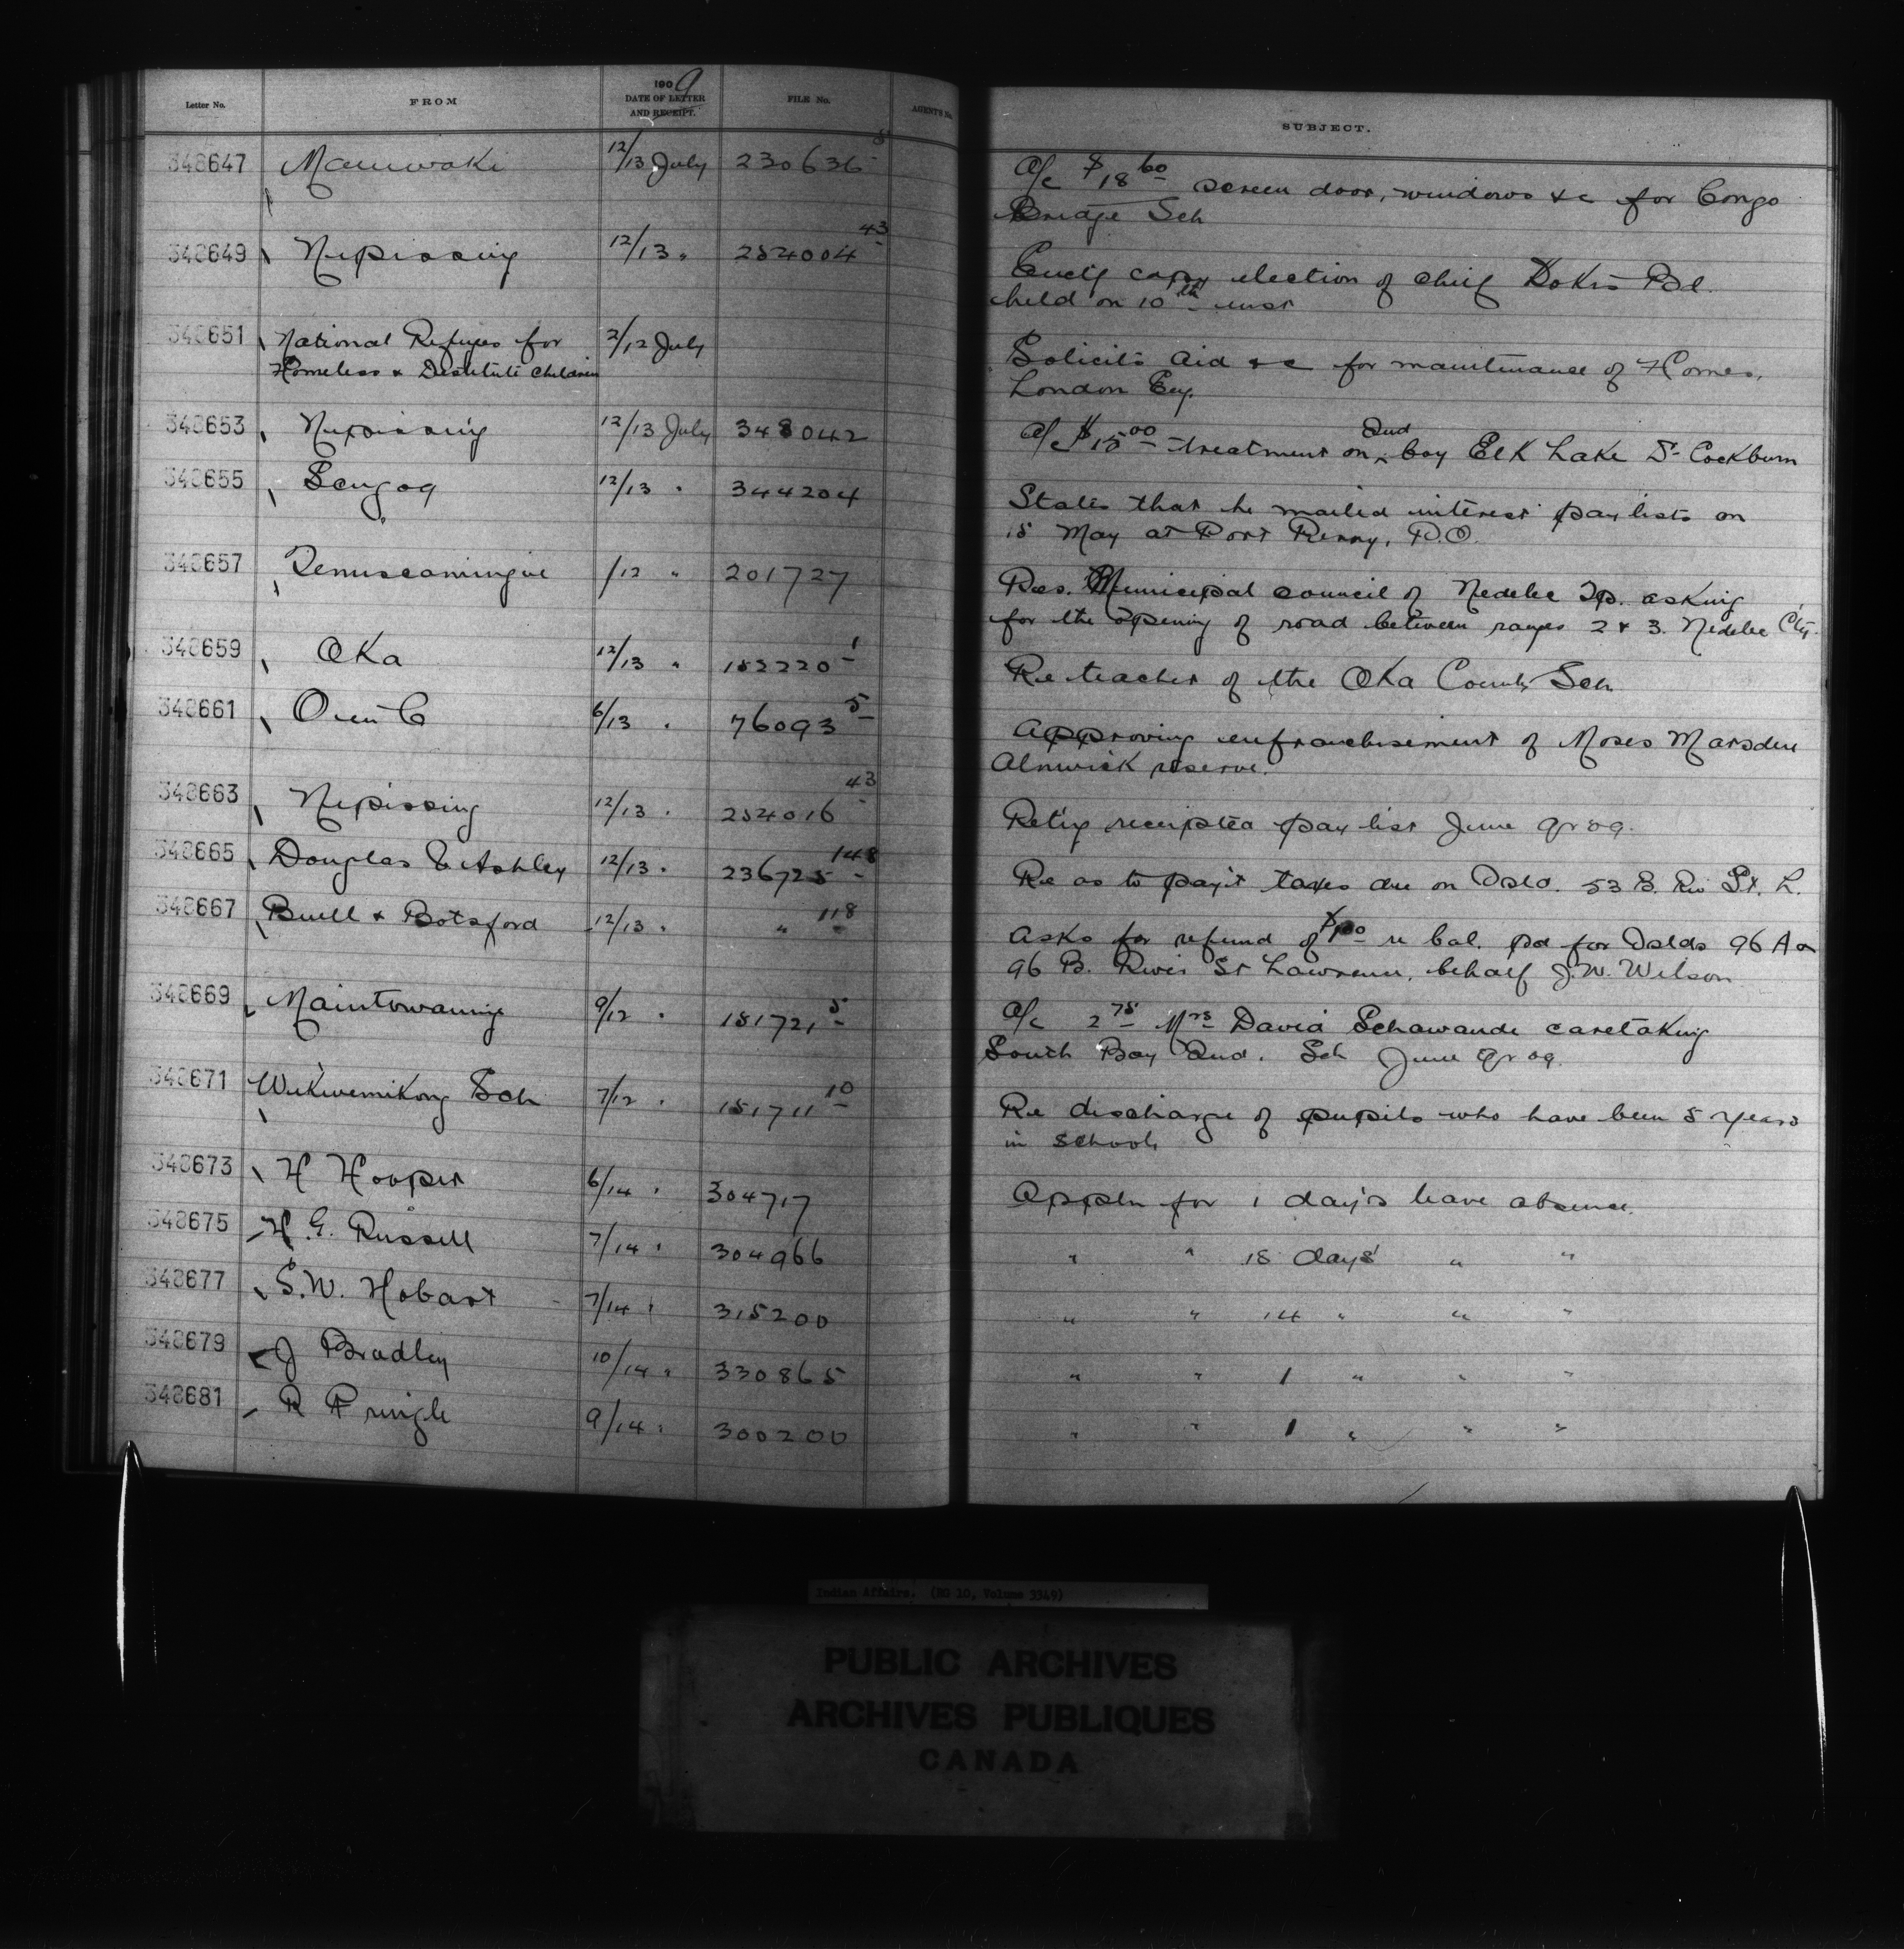 Letter No. FROM 1909 DATE OF LETTER AND RECEIPT. FILE No. AGENT'S No. SUBJECT.
348647 Maniwaki 12/13 July 230636-5 A/c $18.60 screen door, windows &c for Congo
Bridge Sch
348649 Nipissing 12/13 " 252004-43 copy election of chief Dokis Bd.
held on 10th inst
348651 National Refuges for 2/12 July Solicits aid &c for maintenance of Homes,
Homeless & Destitute Children London Eng.
348653 Nipissing 12/13 July 348042 A/c $15.00 treatment on Ind boy Elk Lake Dr Cockburn
348655 Scugog 12/13 " 344204 States that he mailed interest pay lists on
15 May at Port Perry, P.O.
348657 Temiscamingue /12 " 201727 Res. Municipal council of Nedelec Tp. asking
for the opening of road between ranges 2 & 3. Nedelec
348659 Oka 12/13 " 152220-1 Re teacher of the Oka County Sch
348661 O in C 6/13 " 76093-5 Approving enfranchisement of Moses Marsden
Alnwick reserve.
348663 Nipissing 12/13 " 252016-43 Ret'g receipted pay list June qr 09.
348665 Douglas E Ashley 12/13 " 236725-148 Re as to pay't taxes due on Islo. 53 B. Riv St. L.
348667 Buell & Botsford 12/13 " " 118 Asks for refund of re bal. pd for Islds 96 A or
96 B. River St Lawrence, behalf J.W. Wilson
348669 Manitowaning 9/12 " 151721-5 A/c 2.75 Mrs David Schawande caretaking
South Bay Ind. Sch June qr 09.
348671 Wikwemikong Sch 7/12 " 151711-10 Re discharge of pupils who have been 5 years
in school
348673 H Hooper 6/14 " 304717 Appln for 1 day's leave absence.
348675 H. G. Russell 7/14 " 304966 " " 18 days' " "
348677 S. W. Hobart 7/14 " 315200 " " 14 " " "
348679 J Bradley 10/14 " 330865 " " 1 " " "
348681 R Pringle 9/14 " 300200 " " 1 " " "
Indian Affairs. (RG 10, Volume 3349)
PUBLIC ARCHIVES
ARCHIVES PUBLIQUES
CANADA